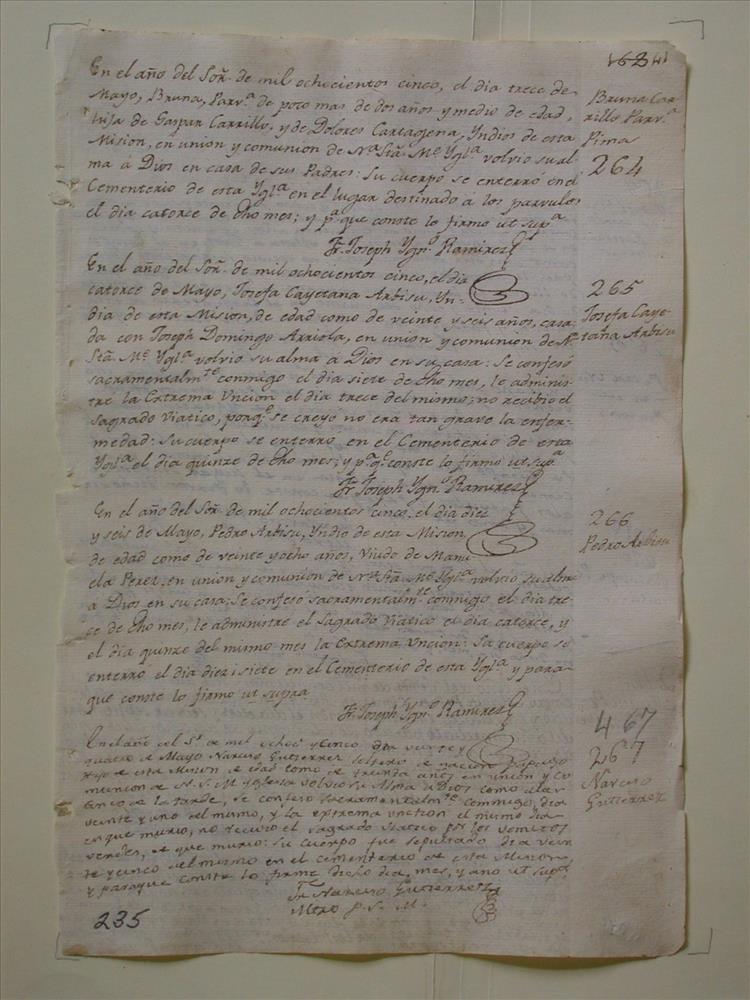 168 141
En el año del Señ.r de mil ochocientos cinco, el dia trece de
Mayo, Bruna, Parv.a de poco mas de dos años y medio de edad,
hija de Gaspar Carrillo, y de Dolores Cartagena, Yndios de esta
Mision, en union y comunion de N.a Stã. M.e Ygl.a volvio su al-
ma á Dios en casa de sus Padres: Su cuerpo se enterró en el
Cementerio de esta Ygl.a en el lugar destinado a los parvulos
el dia catorce de dho mes; y p.a que conste lo firmo ut sup.a
Fr. Joseph Ygn.o Ramirez
Bruna Car-
rillo Parv.a
Pima
264
En el año del Señ.r de mil ochocientos cinco, el dia
catorce de Mayo, Josefa Cayetana Arbisu, Yn-
dia de esta Mision, de edad como de veinte y seis años, casa-
da con Joseph Domingo Arriola, en union y comunion de N.a
Stã. M.e Ygl.a volvio su alma a Dios en su casa: Se confesó
sacramentalm.te conmigo el dia siete de dho mes, le adminis-
tré la Extrema Uncion el dia trece del mismo; no recibio el
Sagrado Viatico, porq.e se creyó no era tan grave la enfer-
medad: su cuerpo se enterró en el Cementerio de esta
Ygl.a el dia quinze de dho mes; y p.a q.e conste lo firmo ut sup.a
Fr. Joseph Ygn.o Ramirez
265
Josefa Caye-
tana Arbisu
En el año del Señ.r de mil ochocientos cinco, el dia diez
y seis de Mayo, Pedro Arbisu, Yndio de esta Mision,
de edad como de veinte y ocho años, Viudo de Manu-
ela Perez, en union y comunion de N.a Stã. M.e Ygl.a volvio su alma
a Dios en su casa: Se confesó sacramentalm.te conmigo el dia tre-
ce de dho mes, le administre el Sagrado Viatico el dia catorce, y
el dia quinze del mismo mes la Extrema Uncion: Su cuerpo se
enterró el dia diez i siete en el Cementerio de esta Ygl.a y para
que conste lo firmo ut supra
Fr. Joseph Ygn.o Ramirez
266
Pedro Arbisu
En el año del S.r de mil ochoc.s y cinco dia veinte y
quatro de Mayo Narciso Gutierrez soltero de nacion Papago
hijo de esta Mision de edad como de treinta años en union y co
munion de N. S. M. Yglesia volvio su Alma a Dios como a las
cinco de la tarde, se confeso sacramentalm.te conmigo, dia
veinte y uno del mismo, y la extrema uncion el mismo dia
en que murio, no recivio el sagrado viatico por los vomitos
verdes, de que murio: su cuerpo fue sepultado dia vein
te y cinco del mismo en el cementerio de esta Mision,
y paraque conste lo firme dicho dia, mes, y año ut sup.a
Fr. Narciso Gutierrez
Mtro p. S. M.
467
267
Narciso
Gutierrez
235